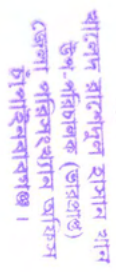 খালেদ রাশেদুল হাসান খান
উপ-পরিচালক (ভারপ্রাপ্ত)
জেলা পরিসংখ্যান অফিস
চাঁপাইনবাবগঞ্জ।